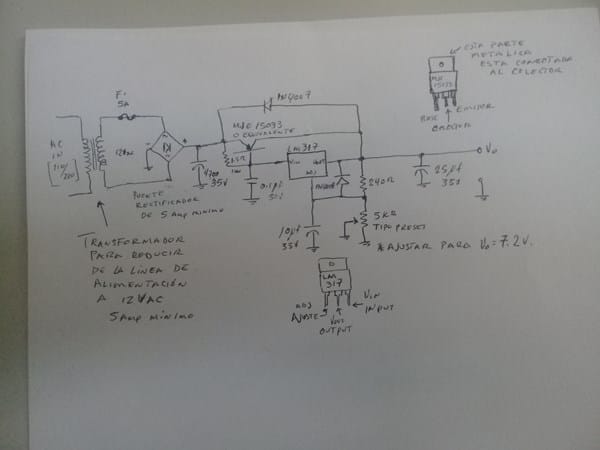 ESTA PARTE
METALICA
ESTA CONECTADA
AL COLECTOR
MJE
15033
EMISOR
BASE
COLECTOR
F1
5A
1N4007
MJE 15033
O EQUIVALENTE
LM317
Vin
Vout
ADJ
Vo
AC
IN
12VAC
4700
35V
0.1µf
50V
240R
25µf
35V
PUENTE
RECTIFICADOR
DE 5 AMP MINIMO
10µf
35V
5KR
TIPO PRESET
* AJUSTAR PARA Vo = 7.2V.
TRANSFORMADOR
PARA REDUCIR
DE LA LÍNEA DE
ALIMENTACIÓN
A 12VAC
5 AMP MÍNIMO
LM
317
ADJ
AJUSTE
VOUT
OUTPUT
VIN
INPUT